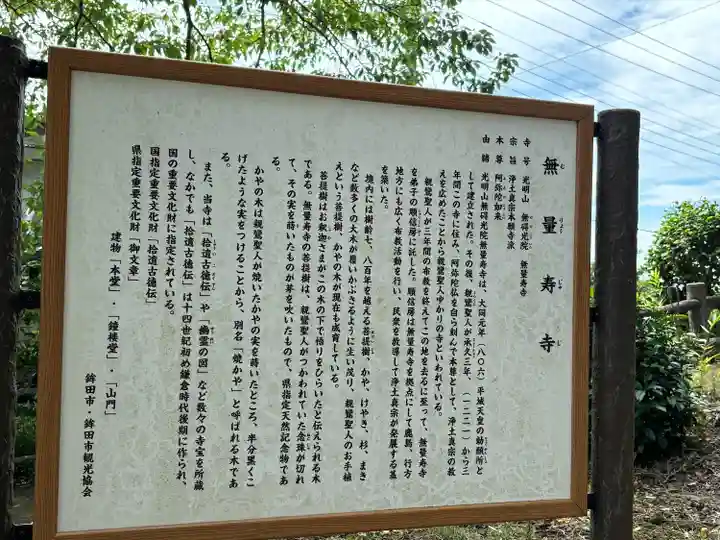 無量寿寺
むりょうじゅじ
寺号 光明山 無碍光院 無量寿寺
宗旨 浄土真宗本願寺派
本尊 阿弥陀如来
由緒 光明山無碍光院無量寿寺は、大同元年(八〇六)平城天皇の勅願所と
して建立された。その後、親鸞聖人が承久三年、(一二二一)から三
年間この寺に住み、阿弥陀仏を自ら刻んで本尊として、浄土真宗の教
えを広めたことから親鸞聖人ゆかりの寺といわれている。
親鸞聖人が三年間の布教を終えてこの地を去るに至って、無量寿寺
を弟子の順信房に託した。順信房は無量寿寺を拠点にして鹿島、行方
地方にも広く布教活動を行い、民衆を教導して浄土真宗が発展する基
を築いた。
境内には樹齢七、八百年を越える菩提樹、かや、けやき、杉、まき
など数多くの大木が覆いかぶさるように生い茂り、親鸞聖人のお手植
えという菩提樹、かやの木が現在も成育している。
菩提樹はお釈迦さまがこの木の下で悟りをひらいたと伝えられる木
である。無量寿寺の菩提樹は、親鸞聖人がつかわれていた念珠が切れ
て、その実を蒔いたものが芽を吹いたもので、県指定天然記念物であ
る。
かやの木は親鸞聖人が焼いたかやの実を蒔いたところ、半分黒くこ
げたような実をつけることから、別名「焼かや」と呼ばれる木であ
る。
また、当寺は「拾遺古徳伝」や「幽霊の図」など数々の寺宝を所蔵
し、なかでも「拾遺古徳伝」は十四世紀初め鎌倉時代後期に作られ、
国の重要文化財に指定されている。
国指定重要文化財「拾遺古徳伝」
県指定重要文化財「御文章」
建物「本堂」・「鐘楼堂」・「山門」
鉾田市・鉾田市観光協会